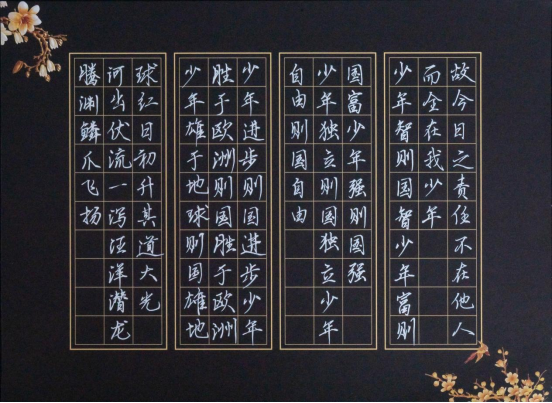 故今日之责任不在他人
而全在我少年
少年智则国智少年富则
国富少年强则国强
少年独立则国独立少年
自由则国自由
少年进步则国进步少年
胜于欧洲则国胜于欧洲
少年雄于地球则国雄地
球红日初升其道大光
河出伏流一泻汪洋潜龙
腾渊鳞爪飞扬